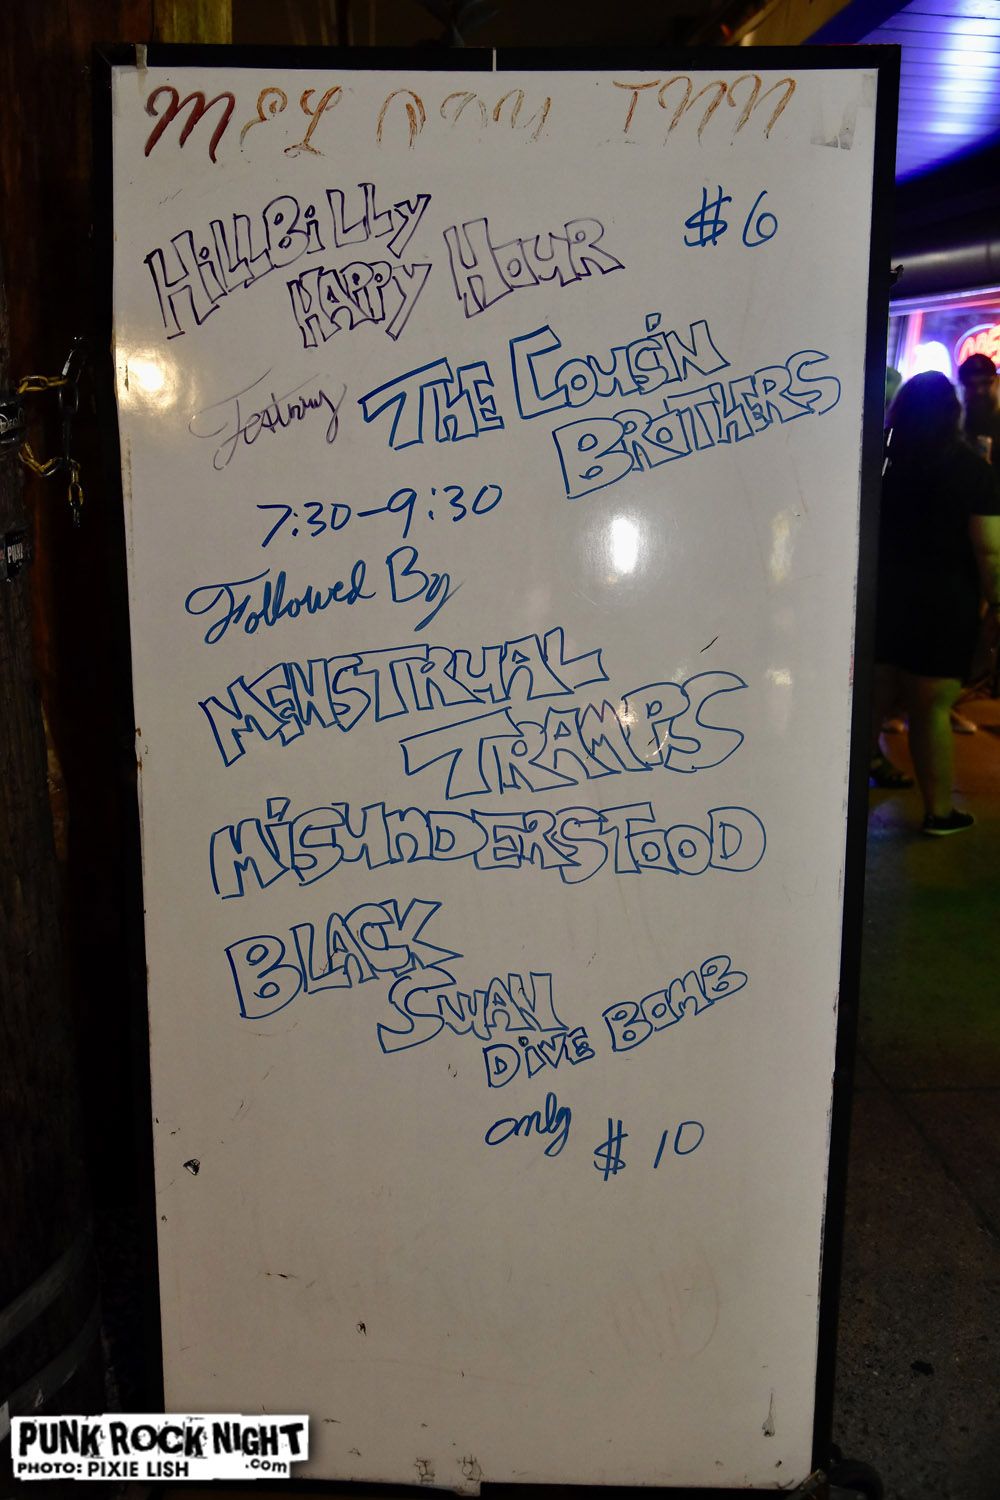 MEL ODY INN
HiLLBiLLy
HAPPY HOUR $6
Featuring THE COUSiN
BROTHERS
7:30-9:30
Followed By
MENSTRUAL
TRAMPS
MiSUNDERSTOOD
BLACK
SWAN
DiVE BOMB
only $10
PUNK ROCK NIGHT
.com
PHOTO: PIXIE LISH